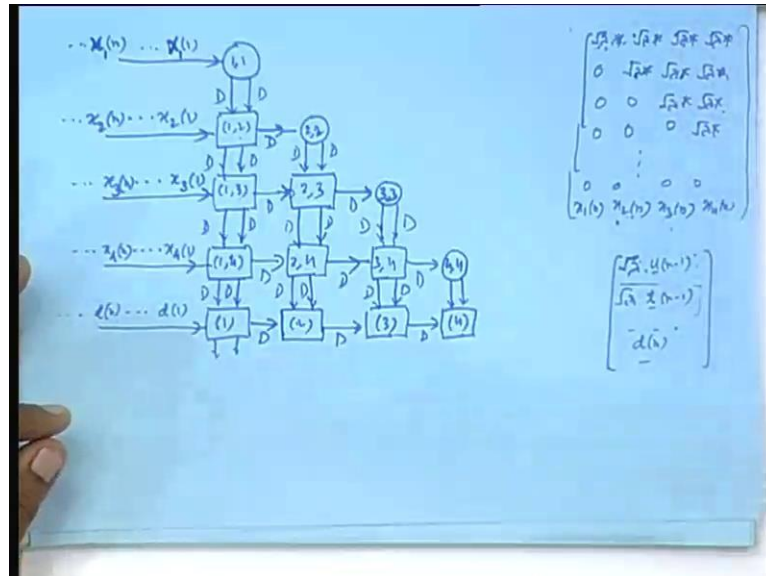 ... x₁(n) ... x₁(1)
1,1
D D
... x₂(n) ... x₂(1)
(1,2) D 2,2
D D D D
... x₃(n) ... x₃(1)
(1,3) D 2,3 D 3,3
D D D D
... x₄(n) .... x₄(1)
(1,4) D 2,4 3,4 D 4,4
D D D D D D
... d(n) ... d(1)
(1) D (2) D (3) D (4)
√λ* √λ* √λ* √λ*
0 √λ* √λ* √λ*
0 0 √λ* √λ*
0 0 0 √λ*
⋮
0 0 0 0
x₁(n) x₂(n) x₃(n) x₄(n)
√λ u(n-1)
√λ (n-1)
d(n)